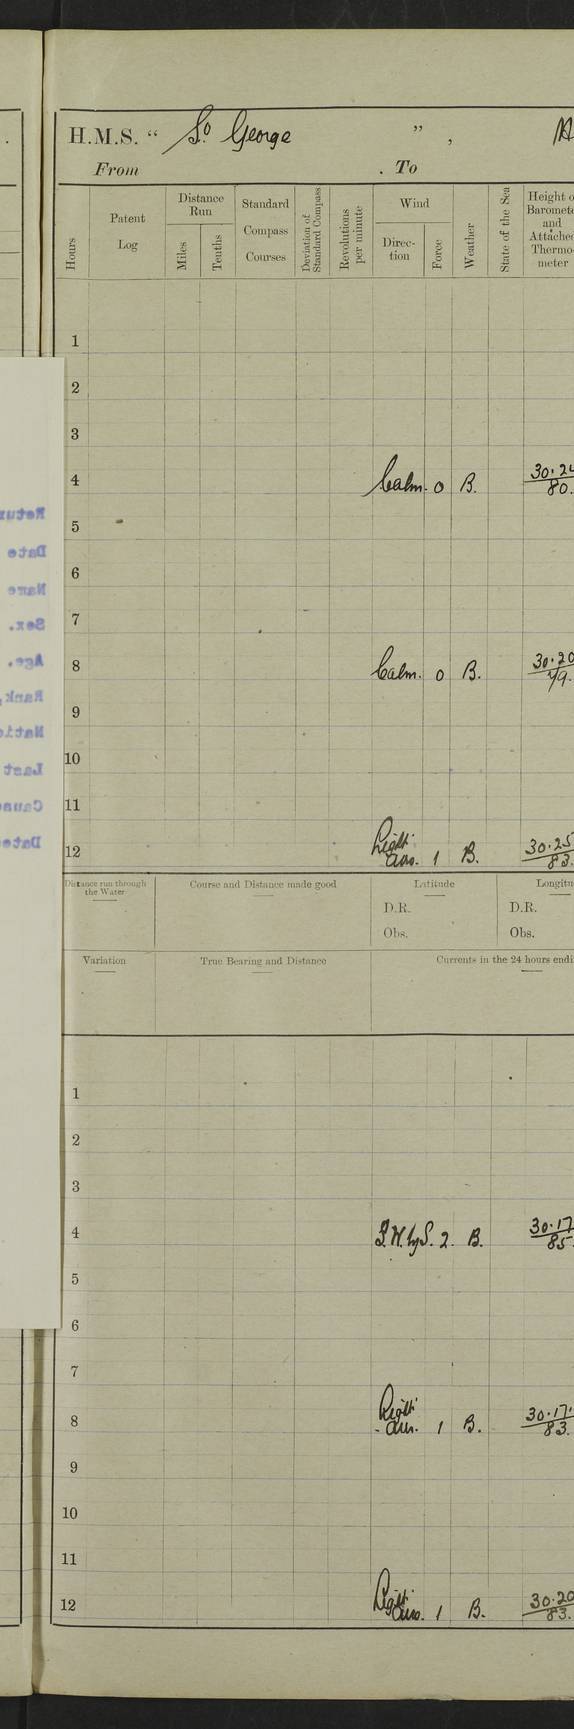 H.M.S. “ St. George ” ,
From . To
Hours
Patent Log
Distance Run
Miles
Tenths
Standard Compass Courses
Deviation of Standard Compass
Revolutions per minute
Wind
Direc- tion
Force
Weather
State of the Sea
Height o
Baromete
and
Attache
Thermo-
meter
1
2
3
4 Calm. 0 B. 30.24 80.
5
6
7
8 Calm. 0 B. 30.20 79.
9
10
11
12 Light airs. 1 B. 30.25 83.
Distance run through the Water
Course and Distance made good
Latitude
Longitu
D.R. D.R.
Obs. Obs.
Variation
True Bearing and Distance
Currents in the 24 hours endi
1
2
3
4 S.W. by S. 2. B. 30.17 85
5
6
7
8 Light airs. 1 B. 30.17. 83.
9
10
11
12 Light airs. 1 B. 30.20 83.
Retur
Date
Name
Sex.
Age.
Rank,
Natio
Last
Cause
Date